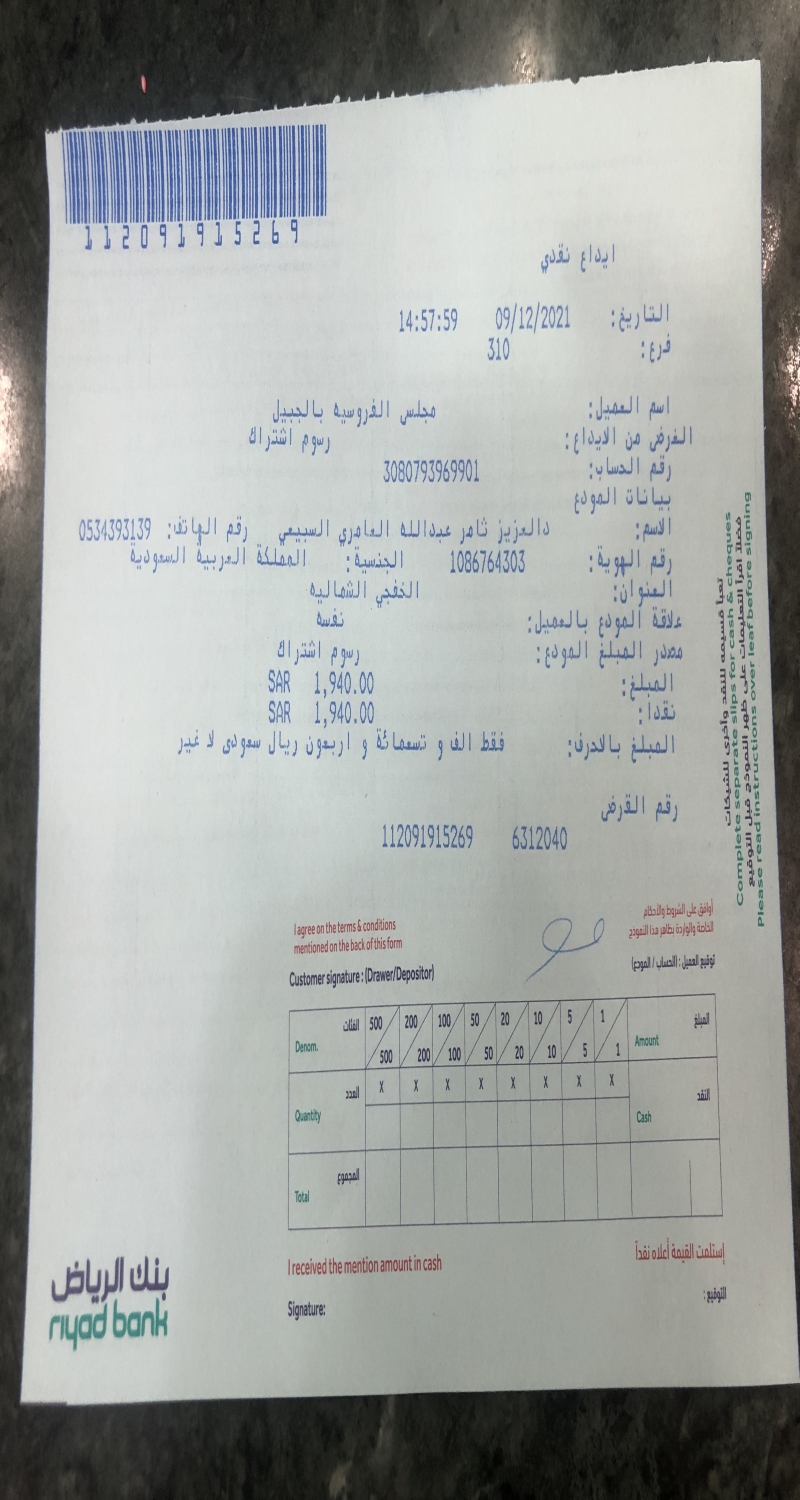 112091915269
ايداع نقدي
التاريخ: 09/12/2021 14:57:59
فرع: 310
اسم العميل: مجلس الفروسيه بالجبيل
الغرض من الايداع: رسوم اشتراك
رقم الحساب: 3080793969901
بيانات المودع
الاسم: دالعزيز ثامر عبدالله العامري السبيعي رقم الهاتف: 0534393139
رقم الهوية: 1086764303 الجنسية: المملكة العربية السعودية
العنوان: الخفجي الشماليه
علاقة المودع بالعميل: نفسه
مصدر المبلغ المودع: رسوم اشتراك
المبلغ: SAR 1,940.00
نقدا: SAR 1,940.00
المبلغ بالاحرف: فقط الف و تسعمائة و اربعون ريال سعودى لا غير
رقم القرض
6312040 112091915269
تعبأ قسيمه للنقد وأخرى للشيكات
Complete separate slips for cash & cheques
فضلاً اقرأ التعليمات على ظهر النموذج قبل التوقيع
Please read instructions over leaf before signing
أوافق على الشروط والأحكام
الخاصة والواردة بظاهر هذا النموذج
I agree on the terms & conditions
mentioned on the back of this form
توقيع العميل: (الحساب / المودع)
Customer signature: (Drawer/Depositor)
الفئات Denom. 500 200 100 50 20 10 5 1 المبلغ Amount
500 200 100 50 20 10 5 1
العدد Quantity X X X X X X X X النقد Cash
المجموع Total
إستلمت القيمة أعلاه نقداً
I received the mention amount in cash
التوقيع:
Signature:
بنك الرياض
riyad bank